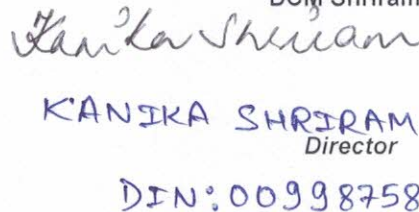 DCM Shriram
Kanika Shriram
KANIKA SHRIRAM
Director
DIN: 00998758